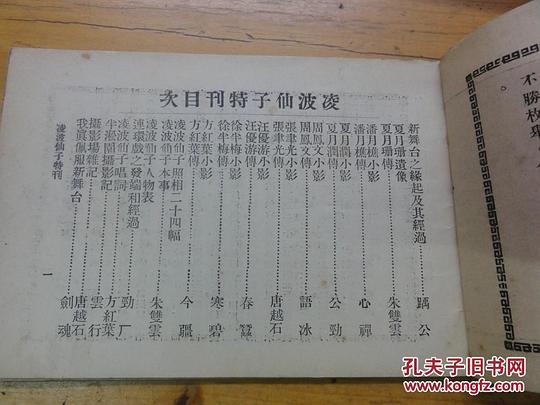 不勝枚舉
。
凌波仙子特刊目次
新舞台之緣起及其經過……踽公
夏月珊遺像
夏月珊傳……朱雙雲
潘月樵小影
潘月樵傳……心禪
夏月潤小影
夏月潤傳……公勁
周鳳文小影
周鳳文傳……語冰
張聿光小影
張聿光傳……唐越石
汪優游小影
汪優游傳……春蠶
徐半梅小影
徐半梅傳……寒碧
方紅葉小影
方紅葉傳……今疆
凌波仙子照相二十四幅
凌波仙子本事
凌波仙子人物表……朱雙雲
連環戲之發端和經過
凌波仙子唱詞……勁厂
半淞園攝影記……方紅葉
攝影場雜記……雲行
我眞佩服新舞台……唐越石
劍魂
凌波仙子特刊
一
孔夫子旧书网
www.kongfz.com